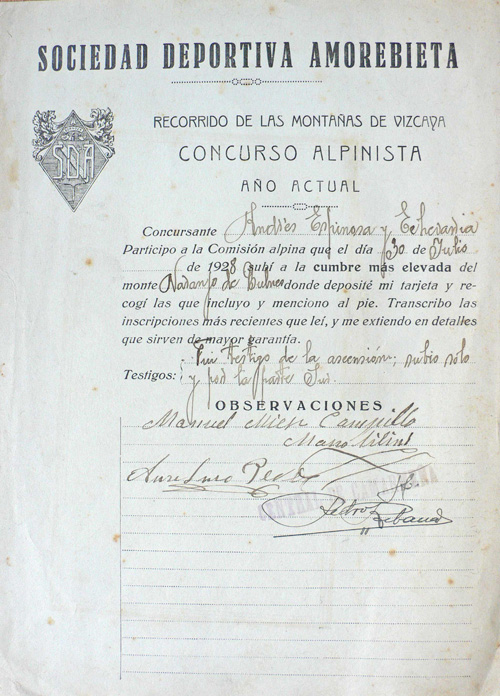 SOCIEDAD DEPORTIVA AMOREBIETA
SDA
RECORRIDO DE LAS MONTAÑAS DE VIZCAYA
CONCURSO ALPINISTA
AÑO ACTUAL
Concursante Andrés Espinosa y Echevarria
Participo a la Comisión alpina que el día 30 de Julio
de 1928 subí a la cumbre más elevada del
monte Naranjo de Bulnes donde deposité mi tarjeta y re-
cogí las que incluyo y menciono al pie. Transcribo las
inscripciones más recientes que leí, y me extiendo en detalles
que sirven de mayor garantía.
Fui testigo de la ascensión; subio solo
Testigos: y por la parte Sur.
OBSERVACIONES
Manuel Mier Campillo
Pedro